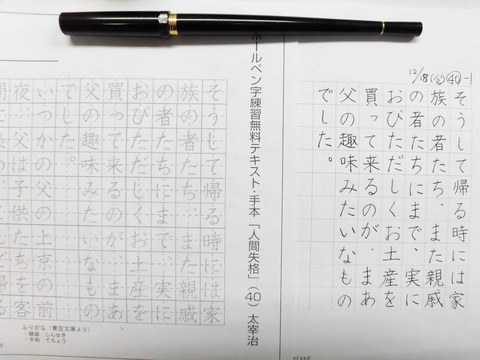 12/18
㊵-1
そうして帰る時には家
族の者たち、また親戚
の者たちにまで、実に
おびただしくお土産を
買って来るのが、まあ
父の趣味みたいなもの
でした。
ボールペン字練習無料テキスト・手本「人間失格」(40) 太宰治
そうして帰る時には家
族の者たち、また親戚
の者たちにまで、実に
おびただしくお土産を
買って来るのが、まあ
父の趣味みたいなもの
でした。
いつかの父の上京の前
夜、父は子供たちを客
ふりがな(青空文庫より)
・親戚 しんせき
・手帖 てちょう